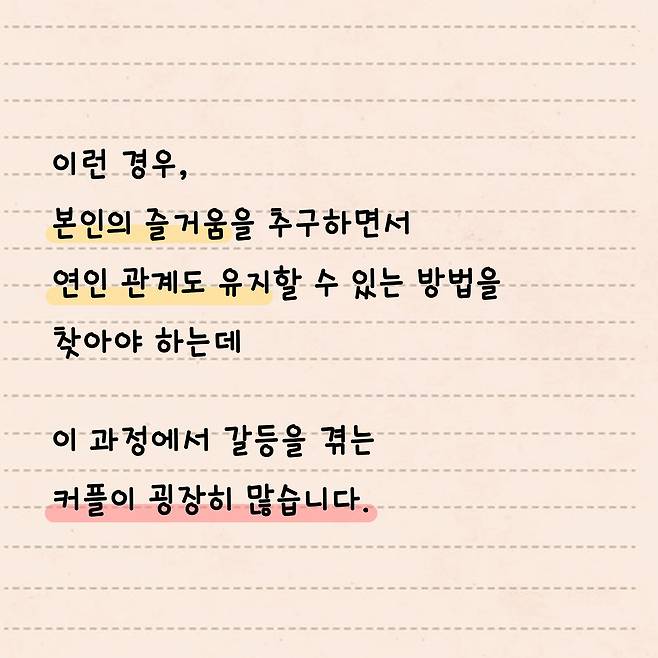 이런 경우,
본인의 즐거움을 추구하면서
연인 관계도 유지할 수 있는 방법을
찾아야 하는데
이 과정에서 갈등을 겪는
커플이 굉장히 많습니다.